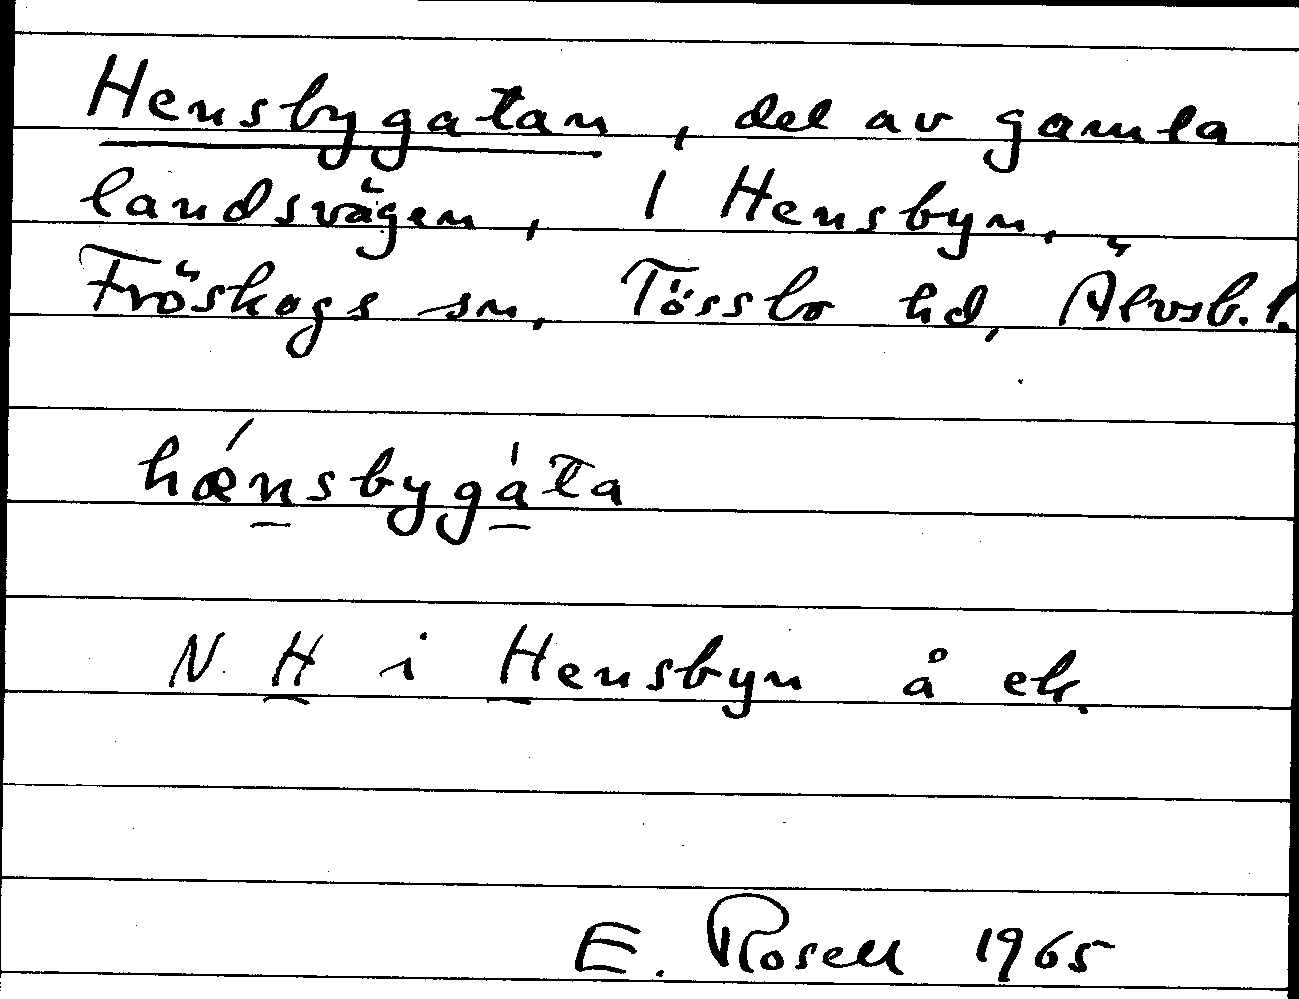 Hensbygatan, del av gamla
landsvägen, I Hensbyn,
Fröskogs sn, Tössbo hd, Älvsb. l.
hǽnsbygàta
N H i Hensbyn å ek.
E. Rosell 1965